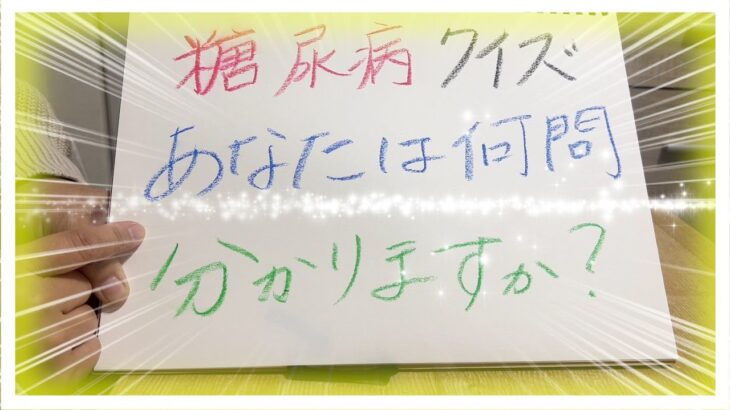 糖尿病クイズ
あなたは何問
分かりますか?